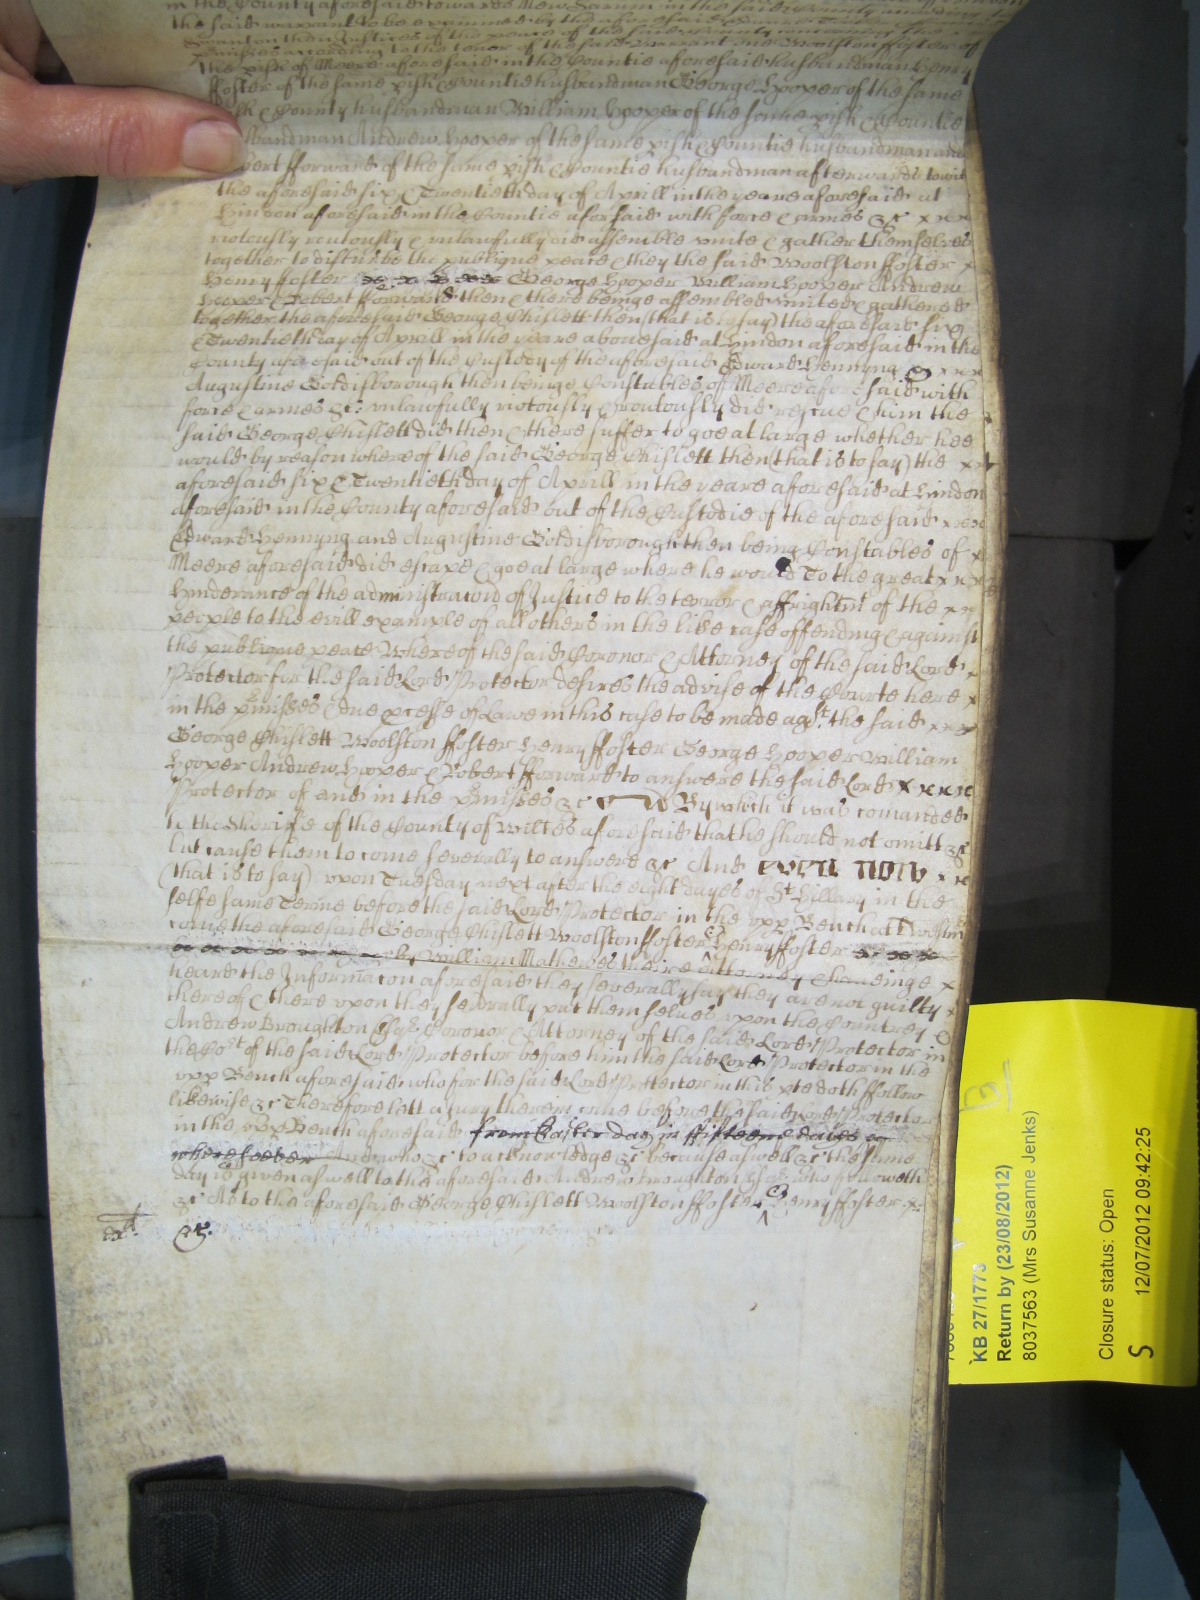 in the County aforesaid towards New Sarum in the said County
the said warrant to be examined by the aforesaid
then Justices of the peace of the said County concerning the
according to the tenor of the said Warrant one Woolston ffoster of
the pish of Meere aforesaid in the Countie aforesaid husbandman Henry
ffoster of the same pish & Countie husbandman George Hooper of the same
& County husbandman William Hooper of the same pish & Countie
husbandman Andrew Hooper of the same pish & Countie husbandman and
fforward of the same pish & Countie husbandman afterwards towit
the aforesaid six & Twentieth day of Aprill in the yeare aforesaid at
Hindon aforesaid in the Countie aforsaid with force & armes &c x x x
riotously routously & unlawfully did assemble unite & gather themselves
together to disturbe the publique peace & they the said Woolston ffoster x
Henry ffoster George Hooper William Hooper Andrew
Hooper & Robert fforward then & there beinge assembled united & gathered
together the aforesaid George Chislett then (that is to say) the aforesaid six
& Twentieth day of Aprill in the yeare abovesaid at Hindon aforesaid in the
County aforesaid out of the Custody of the aforesaid Edward Hennyng & x x x
Augustine Goldisborough then beinge Constables of Meere aforesaid with
force & armes &c: unlawfully riotously & routously did rescue & him the
said George Chislett did then & there suffer to goe at large whether hee
would by reason whereof the said George Chislett then (that is to say) the x x
aforesaid six & Twentieth day of Aprill in the yeare aforesaid at Hindon
aforesaid in the County aforesaid out of the Custodie of the aforesaid x x x
Edward Hennyng and Augustine Goldisborough then being Constables of x
Meere aforesaid did escape & goe at large where he would To the great x x x
hinderance of the administracoid of Justice to the terror & affrightmt of the x x
people to the evill example of all others in the like case offending & against
the publique peace Whereof the said Coronor & Attorney of the said Lord x
Protector for the said Lord Protector desires the advise of the Courte here x
in the pmisses & due pcesse of Lawe in this case to be made agst. the said x x x
George Chislett Woolston ffoster Henry ffoster George Hooper William
Hooper Andrew Hooper & Robert fforward to answere the said Lord x x x x
Protector of and in the pmisses &c By which it was comanded
to the Sheriffe of the County of Wiltes aforesaid that he should not omitt &c
but cause them to come severally to answere &c And now x x
(that is to say) upon Tuesday next after the eight dayes of St. Hillary in the
selfe same Terme before the said Lord Protector in the upp Bench att Westm
come the aforesaid George Chislett Woolston ffoster & Henry ffoster
by William Mathewes theire Attorney & haveinge x
heard the Informacon aforesaid they severally say they are not guilty x
thereof & thereupon they severally put themselves upon the Countrey &
Andrew Broughton Esqr. Coronor & Attorney of the said Lord Protector in
the Cort of the said Lord Protector before him the said Lord Protector in the
upp Bench aforesaid who for the said Lord Protector in this pte doth ffollow
likewise &c Therefore lett a jury thereon come before the said Lord Protector
in the upp Bench aforesaid from Easter day in ffifteene dayes
wheresoever And who &c to acknowledge &c because aswell &c the same
day is given aswell to the aforesaid Andrew Broughton Esqr. who followeth
&c As to the aforesaid George Chislett Woolston ffoster & Henry ffoster x:
&c.
KB 27/1773
Return by (23/08/2012)
8037563 (Mrs Susanne Jenks)
Closure status: Open
S 12/07/2012 09:42:25